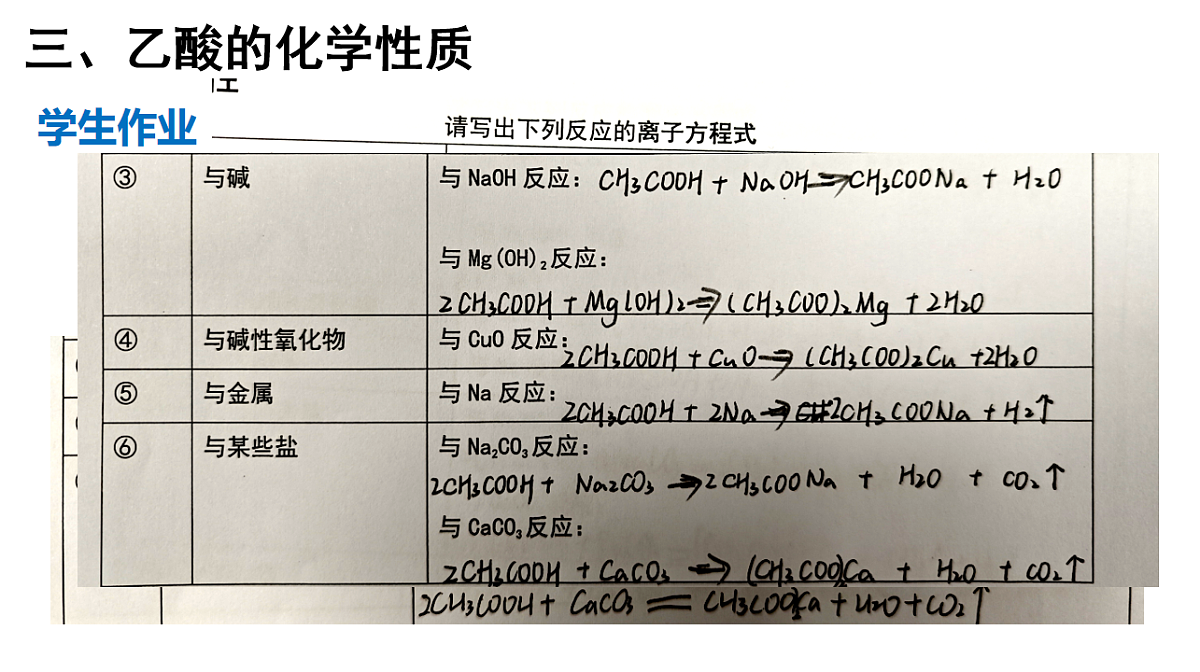 三、乙酸的化学性质
学生作业
请写出下列反应的离子方程式
③ 与碱 与 NaOH 反应: CH3COOH + NaOH ⇒ CH3COONa + H2O
与 Mg(OH)₂反应:
2CH3COOH + Mg(OH)2 ⇒ (CH3COO)2Mg + 2H2O
④ 与碱性氧化物 与 CuO 反应: 2CH3COOH + CuO → (CH3COO)2Cu +2H2O
⑤ 与金属 与 Na 反应: 2CH3COOH + 2Na → 2CH3COONa + H2↑
⑥ 与某些盐 与 Na₂CO₃反应:
2CH3COOH + Na2CO3 → 2CH3COONa + H2O + CO2↑
与 CaCO₃反应:
2CH3COOH + CaCO3 → (CH3COO)2Ca + H2O + CO2↑
2CH3COOH + CaCO3 = CH3COO)2Ca + H2O + CO2↑